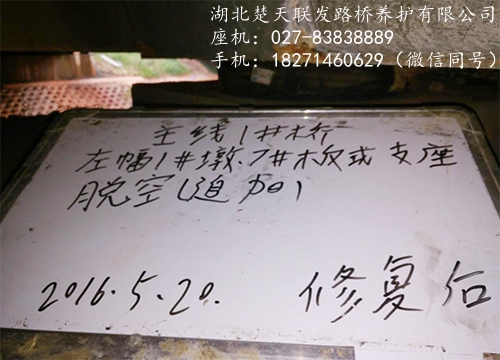 湖北楚天联发路桥养护有限公司
座机：027-83838889
手机：18271460629（微信同号）
主线1#桥
左幅1#墩7#板式支座
脱空(追加)
2016.5.20. 修复后